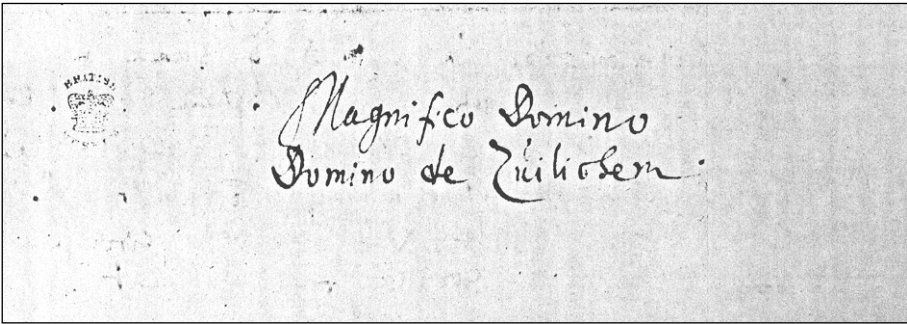 BRITISH
Magnifico Domino
Domino de Zuilichem.